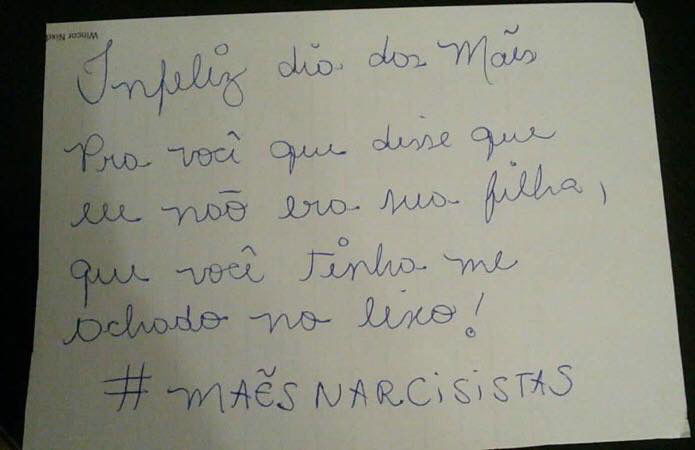 Wincor Nixd
Infeliz dia das Mães
Pra você que disse que
eu naõ era sua filha,
que você tinha me
achado no lixo!
#MAẼSNARCISISTAS